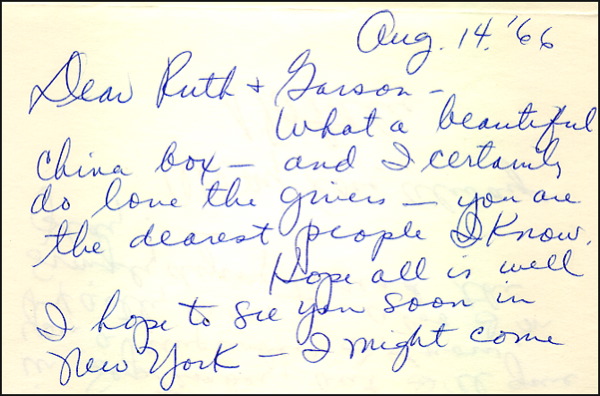 Aug. 14. '66
Dear Ruth + Garson -
What a beautiful
china box - and I certainly
do love the givers - you are
the dearest people I know.
Hope all is well
I hope to see you soon in
New York - I might come